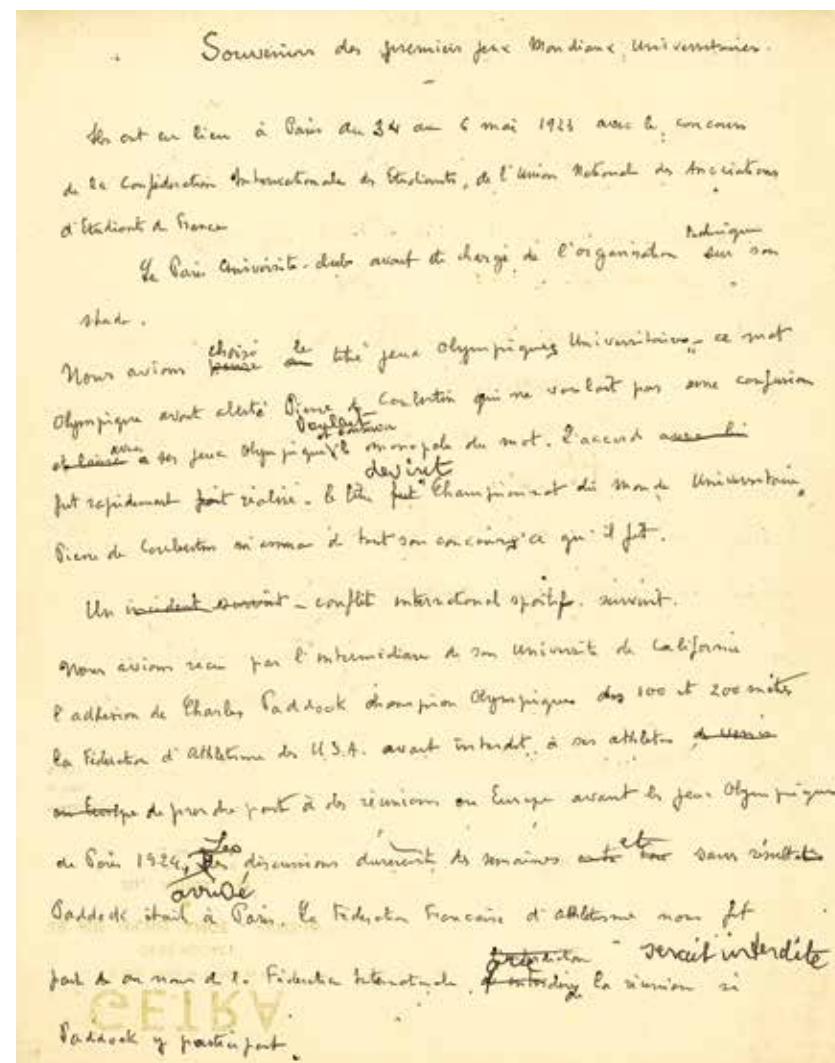 Souvenirs des premiers jeux Mondiaux Universitaires.
Ils ont eu lieu à Paris du 34 au 6 mai 1923 avec le concours
de la Confédération Internationale des Etudiants, de l'Union Nationale des Associations
d'Etudiants de France
Le Paris Université-club avait été chargé de l'organisation technique sur son
stade.
Nous avions choisi le titre jeux Olympiques Universitaires - ce mot
Olympique avait alerté Pierre de Coubertin qui ne voulait pas une confusion
avec ses jeux Olympiques voulait conserver le monopole du mot. L'accord
fut rapidement réalisé. le titre devint "Championnat du monde Universitaire"
Pierre de Coubertin m'assura de tout son concours, ce qu'il fit.
Un incident survint - conflit international sportif. survint.
Nous avions reçu par l'intermédiaire de son Université de Californie
l'adhésion de Charles Paddock champion Olympique des 100 et 200 mètres
la Fédération d'Athlétisme des U.S.A. avait interdit à ses athlètes de venir
en Europe de prendre part à des réunions en Europe avant les jeux Olympiques
de Paris 1924, Les discussions durèrent des semaines et sans résultats
Paddock était arrivé à Paris. La Fédération Française d'athlétisme nous fit
part au nom de la Fédération Internationale, serait interdite la réunion si
Paddock y participait.
GETRA